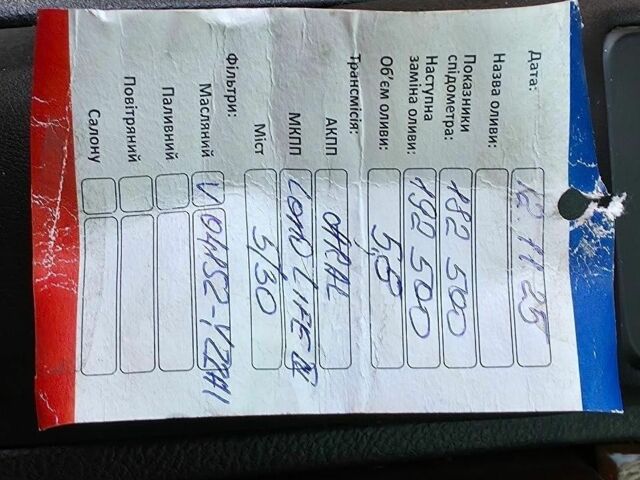 Дата: 12.11.25
Назва оливи:
Показники спідометра: 182 500
Наступна заміна оливи: 192 500
Об'єм оливи: 5,8
Трансмісія:
АКПП ARAL
МКПП LONG LIFE IV
Міст 5/30
Фільтри:
Масляний V 04152-YZZA1
Паливний
Повітряний
Салону